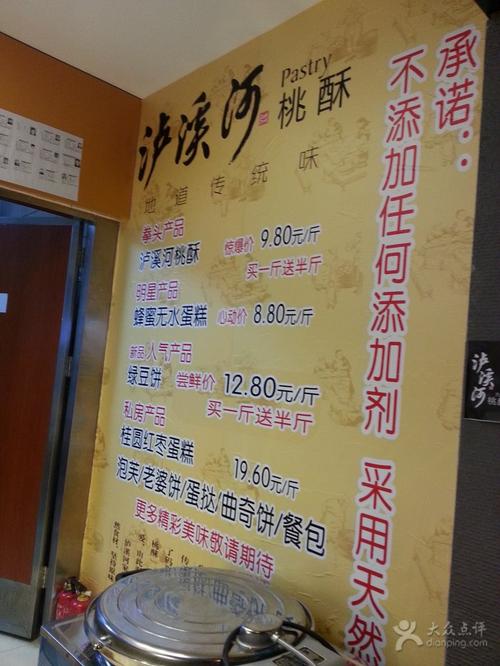 泸溪河
Pastry
桃酥
地道传统味
拳头产品
泸溪河桃酥 惊爆价 9.80元/斤
买一斤送半斤
明星产品
蜂蜜无水蛋糕 心动价 8.80元/斤
新品人气产品
绿豆饼 尝鲜价 12.80元/斤
买一斤送半斤
私房产品
桂圆红枣蛋糕 19.60元/斤
泡芙/老婆饼/蛋挞/曲奇饼/餐包
更多精彩美味敬请期待
承诺：
不添加任何添加剂 采用天然
泸溪河
大众点评
dianping.com